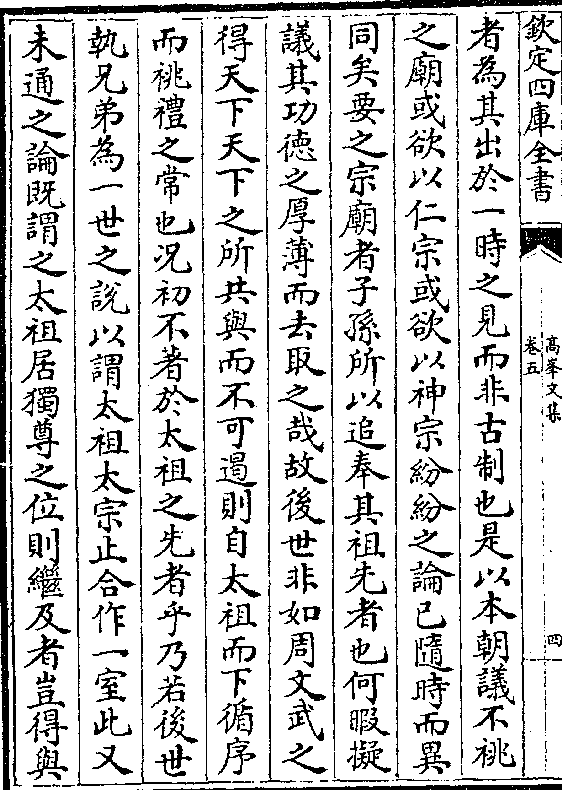 欽定四庫全書
高峯文集
卷五
四
者為其出於一時之見而非古制也是以本朝議不祧
之廟或欲以仁宗或欲以神宗紛紛之論已隨時而異
同矣要之宗廟者子孫所以追奉其祖先者也何暇擬
議其功德之厚薄而去取之哉故後世非如周文武之
得天下天下之所共與而不可遏則自太祖而下循序
而祧禮之常也况初不著於太祖之先者乎乃若後世
執兄弟為一世之說以謂太祖太宗止合作一室此又
未通之論既謂之太祖居獨尊之位則繼及者豈得與